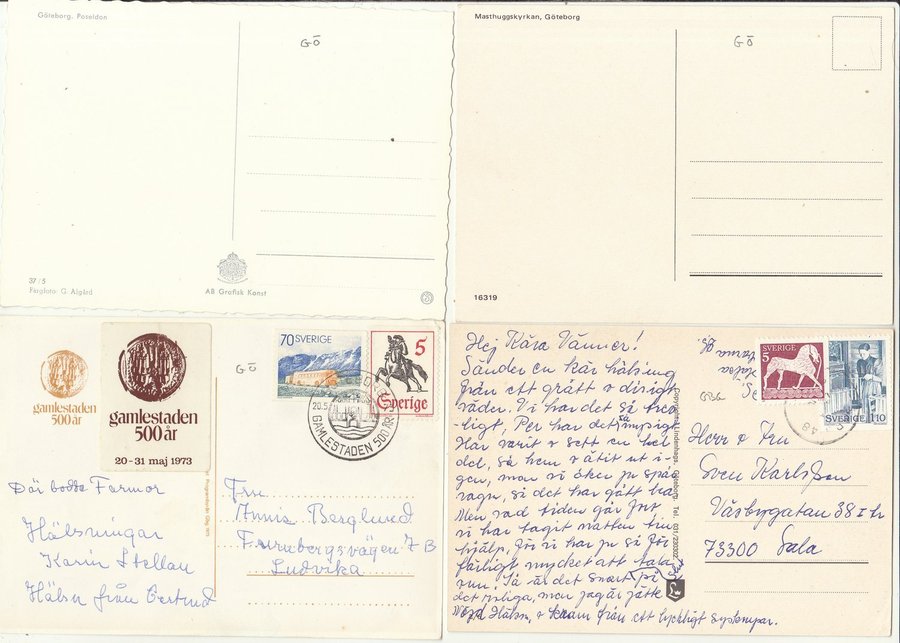 Göteborg, Poseidon
GÖ
37/5
Färgfoto: G. Algård
AB Grafisk Konst
Masthuggskyrkan, Göteborg
GÖ
16319
gamlestaden
500 år
gamlestaden
500 år
20-31 maj 1973
GÖ
70 SVERIGE
5
Sverige
20.5
GAMLESTADEN 500 ÅR
Farmor
Hälsningar
Karin Stellan
Hälsn från Gertrud
Fru
Annie Berglund
7 B
Ludvika
Hej Kära Vänner!
Sänder en kär hälsning
från ett grått o disigt
väder. Vi har det så tre-
ligt, Per har det så mysigt
Här varit o sett en hel
del, så hem o ätit ut i-
gen, men vi åker ju spår
vagn, så det har gått bra
Men vad tiden går fort
vi har tagit natten till
hjälp, för vi har ju så för
färligt mycket att tala
om. Så är det snart
men jag är jätte
Hälsn, o kram från ett lyckligt syskonpar.
Lindenhags Göteborg Tel. 031/
SVERIGE
5
SVERIGE 1.10
Herr o Fru
Sven Karlsson
Väsbygatan 38 I tr
73300 Sala